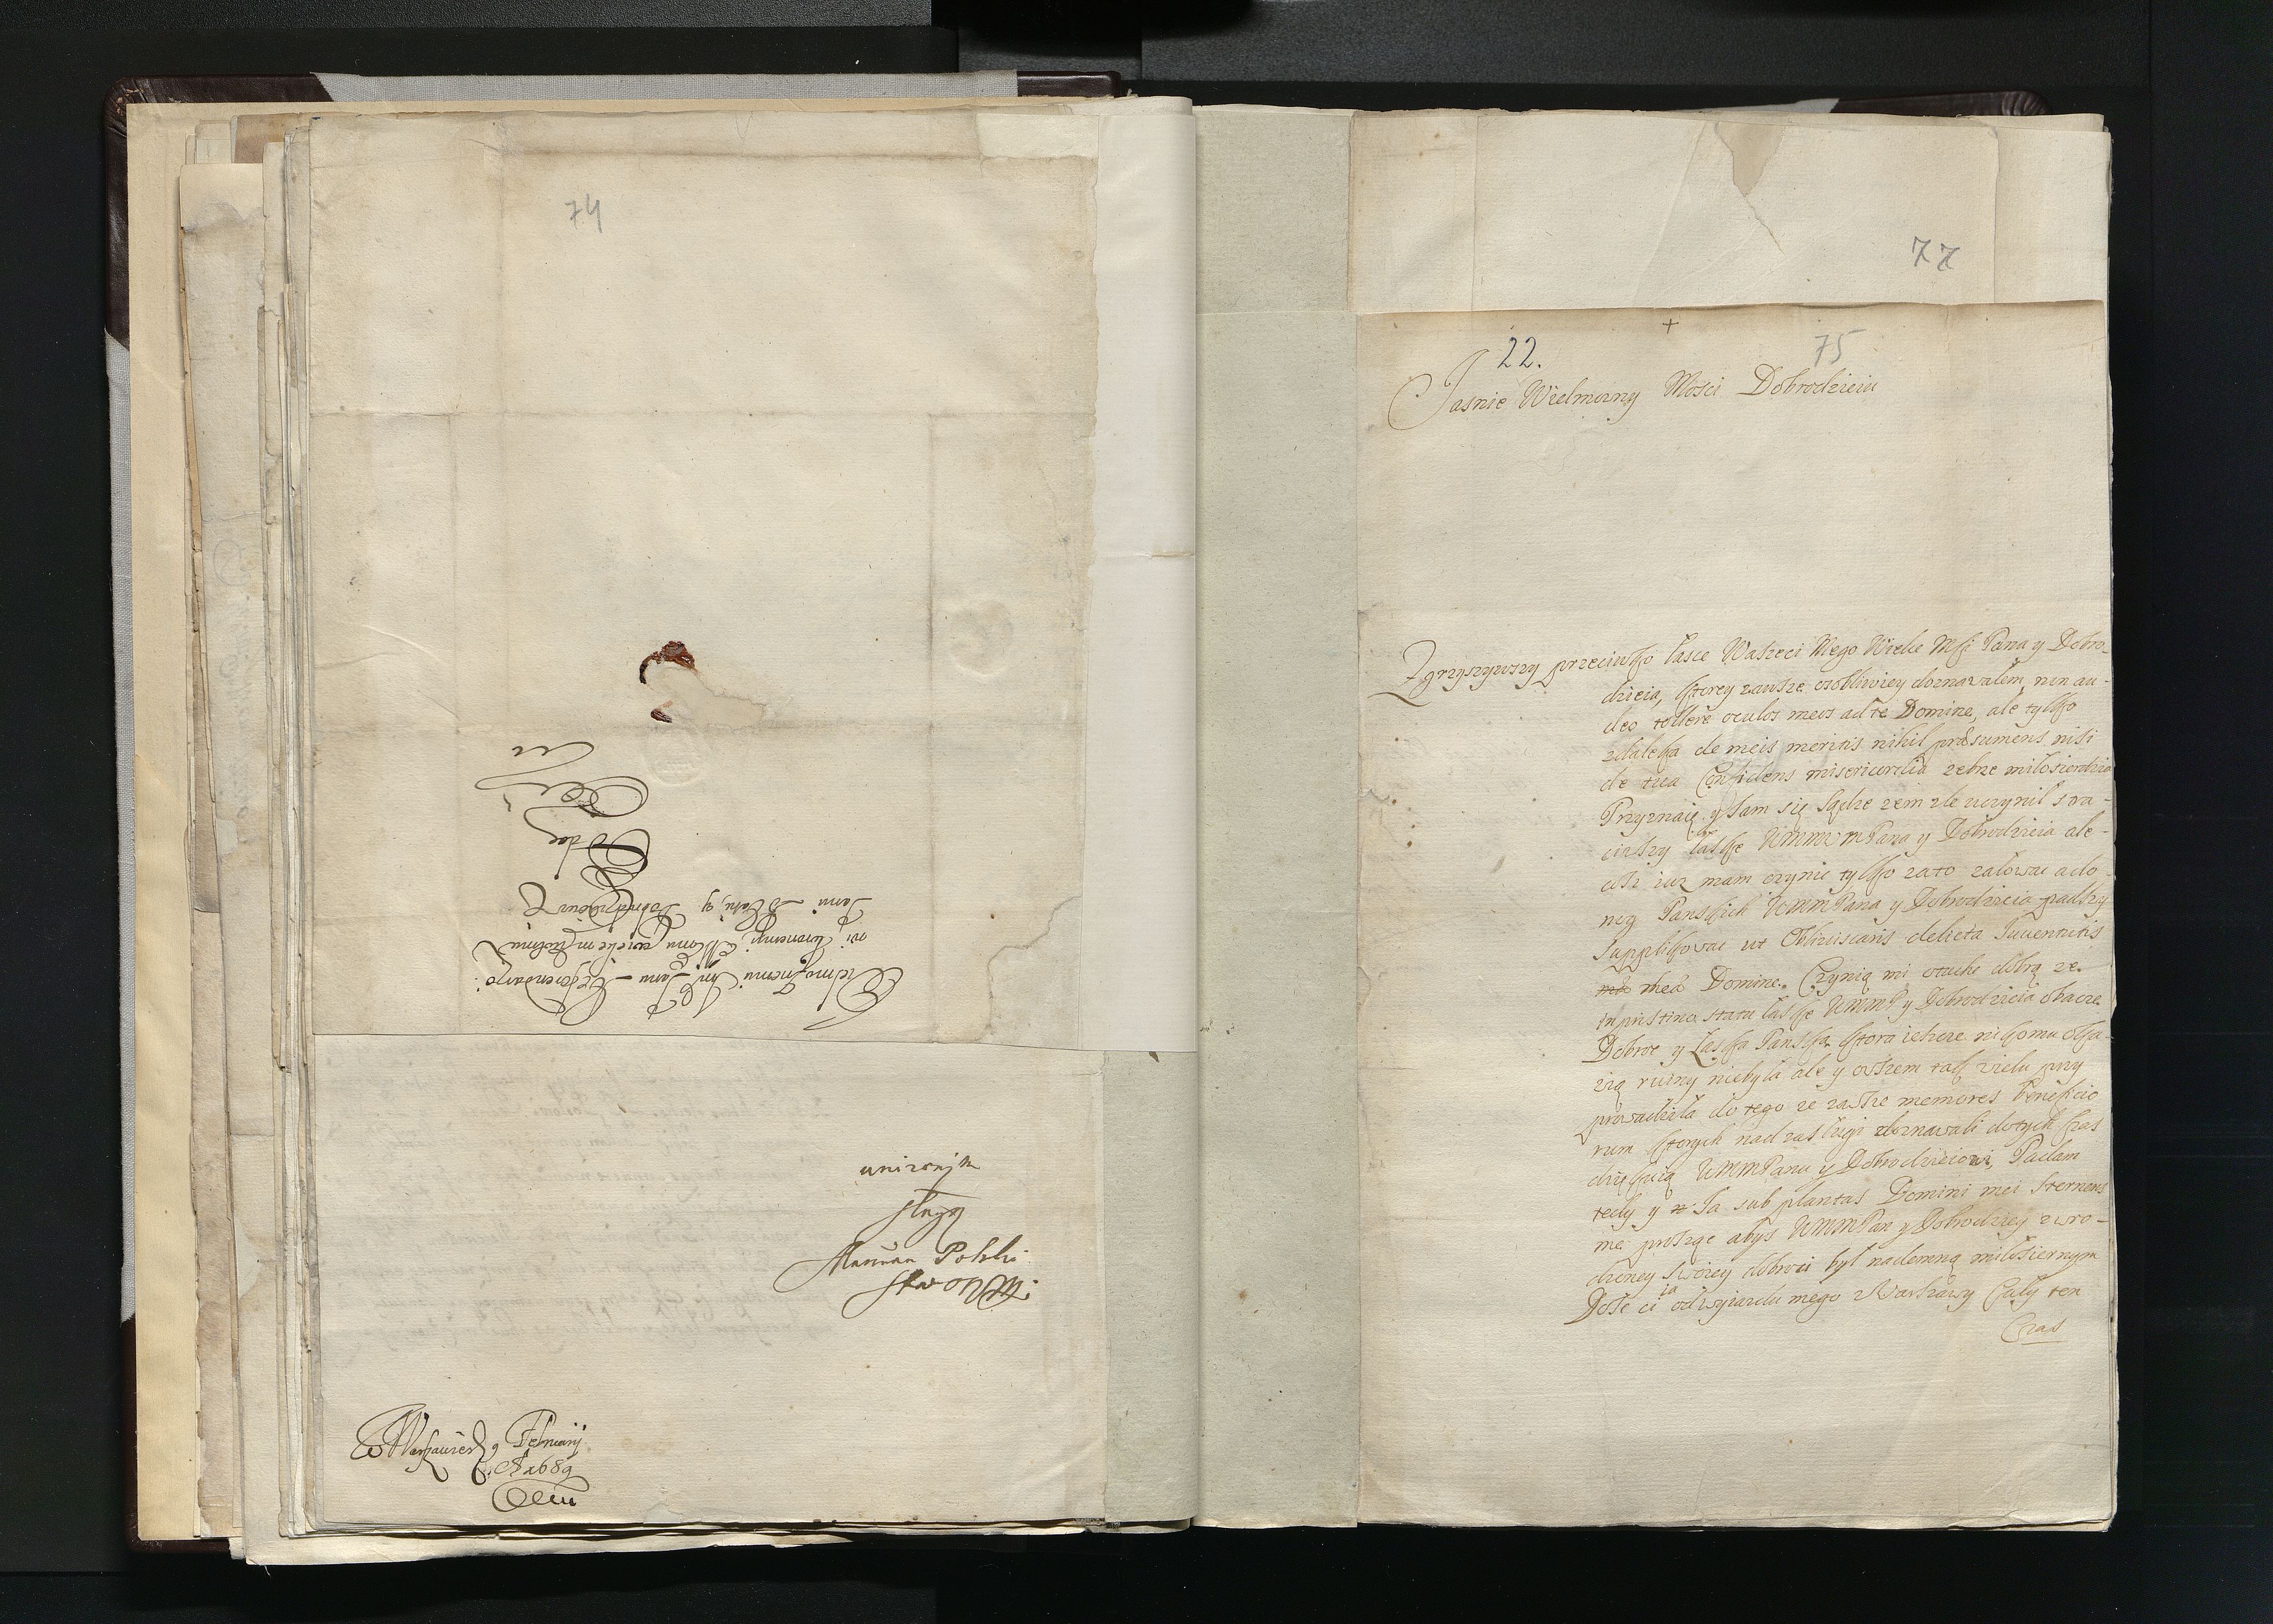 74
Wielmoznemu Jmci Panu Referendarzo-
wi Koronnemu Memu wielce msciwemu
Panu Bratu, y Dobrodzieiowi
Oddac
Pilno
unizonym
sługą
Polski
W Warszawie 9 Februarij
A 1689
77
22.
75
Jasnie Wielmozny Mosci Dobrodzieiu
Zgrzyszywszy przeciwko łasce Waszeci Mego Wielce Msci Pana y Dobro-
dzieia, ktorey zawsze osobliwiey doznawałem, non au-
deo tollere oculos meos ad te Domine, ale tylko
zdaleka de meis meritis nihil præsumens nisi
de tua Confidens misericordia zebrze miłosierdzia
Przyznaię y sam się sądze zem zle uczynił stra-
ciwszy łaskę WMMMPana y Dobrodzieia ale
coz iuz mam czynic tylko zato załowac a do
nog Panskich WMMPana y Dobrodzieia padszy
supplikowac ut Obliviscaris delicta Iuventutis
mea Domine. Czynią mi otuche dobrą ze
in pristino statu łaske WMMP y Dobrodzieia obacze
Dobroc y Łaska Panska ktora ieszcze nikomu oka-
zią ruiny niebyła ale y owszem tak wielu przy
prowadziła do tego ze zawsze memores Beneficio
rum ktorych nad zasługi doznawali dotych czas
dziękuią WMMPanu y Dobrodzieiowi, Padam
tedy y Ja sub plantas Domini mei sternens
me prosząc abys WMMPan y Dobrodziey zwro-
dzoney swoiey dobroci był nademną miłosiernym
Dosc ci ia odwyiazdu mego z Warszawy Cały ten
Czas